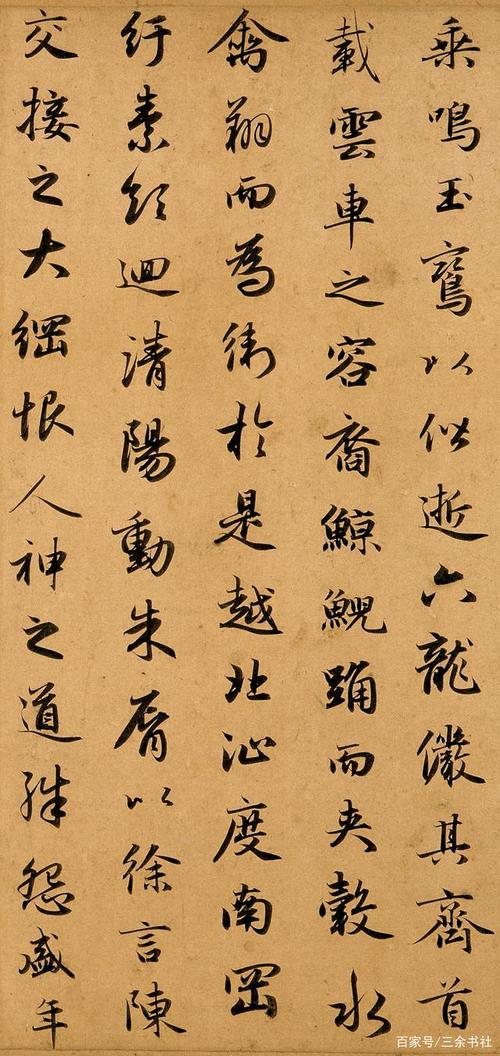 乘鳴玉鸞以偕逝六龍儼其齊首
載雲車之容裔鯨鯢踊而夾轂水
禽翔而為衛於是越北沚度南岡
紆素領迴清陽動朱脣以徐言陳
交接之大綱恨人神之道殊怨盛年
百家号/三余书社